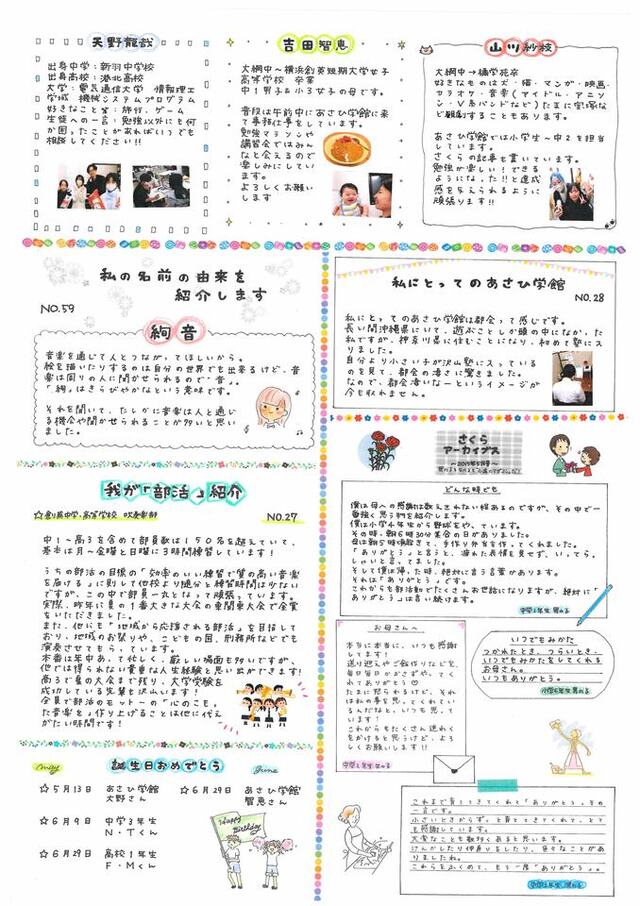 天野龍哉
出身中学：新羽中学校
出身高校：港北高校
大学：電気通信大学 情報理工
学域 機械システムプログラム
好きなこと等：旅行、ゲーム
生徒への一言：勉強以外にも何
か困ったことがあればいつでも
相談してください!!
吉田智恵
大綱中〜横浜創英短期大学女子
高等学校 卒業
中１男子＆小３女子の母です。
普段は午前中にあさひ学館に来
て事務仕事をしています。
勉強マラソンや
講習会ではみん
なと会えるので
楽しみにしてい
ます。
よろしくお願い
します
山ツ紗枝
大綱中→橘学苑卒
好きなものは犬・猫・マンガ・映画・
カラオケ・音楽（アイドル・アニソ
ン・Ｖ系バンドなど）たまに宝塚な
ど観劇することもあります。
あさひ学館では小学生〜中２を担当
しています。
さくらの記事も書いています。
勉強が楽しい！できる
ようになった!!と達成
感を与えられるように
頑張ります!!
私の名前の由来を
紹介します
NO.59
絢音
音楽を通じて人とつながってほしいから。
絵を描いたりするのは自分の世界でも出来るけど、音
楽は周りの人に聞かせられるので「音」。
「絢」はきらびやかなという意味です。
それを聞いて、たしかに音楽は人と通じ
る機会や聞かせられることが多いと思い
ました。
私にとってのあさひ学館
NO.28
私にとってのあさひ学館は都会って感じです。
長い間沖縄県にいて、遊ぶことしか頭の中になかった
私ですが、神奈川県に住むことになり、初めて塾に入
りました。
自分より小さい子が沢山塾に入っている
のを見て、都会の凄さに驚きました。
なので、都会凄いなーというイメージが
今も収れません。
我が「部活」紹介
☆創英中学・高等学校 吹奏楽部
NO.27
中１〜高３を含めて部員数は１５０名を超えていて、
基本は月〜金曜と日曜に３時間練習しています！
うちの部活の目標の「効率のいい練習で質の高い音楽
を届ける」に則して他校より随分と練習時間は少ない
ですが、この中で部員一丸となって頑張っています。
実際、昨年に夏の１番大きな大会の東関東大会で金賞
をいただきました。
また、他にも「地域から応援される部活」を目指して
おり、地域のお祭りや、こどもの国、刑務所などでも
演奏させてもらっています。
本番は年中あって忙しく、厳しい場面も多いですが、
他では得られない貴重な人生経験と思い出ができます！
高３で夏の大会まで残り、大学受験を
成功している先輩も沢山います！
全員で部活のモットーの「心のこもっ
た音楽を」作り上げることは他に代え
がたい時間です！
さくら
アーカイブス
どんな時でも
僕は母への感謝は数えきれない程あるのですが、その中で一
番強く思う物を紹介します。
僕は小学４年生から野球をやっています。
その時、朝６時３０分集合の日がありました。
母は朝５時頃起きて、手作り弁当を作ってくれました。
「ありがとう」と言うと、疲れた表情を見せず、いってらっ
しゃいと言ってました。
そして僕は帰った時、絶対に言う言葉があります。
それは「ありがとう」です。
これからも部活動でたくさんお世話になりますが、絶対に「
ありがとう」は言い続けます。
お母さんへ
本当に本当に、いつも感謝
してます！
送り迎えやご飯作りなどを、
毎日毎日かかさずやってく
れてありがとう♡
たまに怒られるけど、それ
は私の事を思ってくれてい
るんだなと、いつも思ってい
ます！
これからもたくさん迷わく
をかけると思うけど、よろ
しくお願いします!!
いつでもみかた
つかれたとき、つらいとき、
いつでもみかたをしてくれる
お母さん。
いつもありがとう。
これまで育ててきてくれて「ありがとう」その
一言です。
小さいときからずっと育ててきてくれて、とて
も感謝しています。
大変なことも数多くあると思います。
けんかしたり仲直りをしたり、色々なことがあ
りましたね。
これらをふくめて、もう一度「ありがとう」。
May
誕生日おめでとう
June
☆５月１３日 あさひ学館
大野さん
☆６月２９日 あさひ学館
智恵さん
☆６月９日 中学３年生
Ｎ・Ｔくん
☆６月２９日 高校１年生
Ｆ・Ｍくん
Happy
Birthday